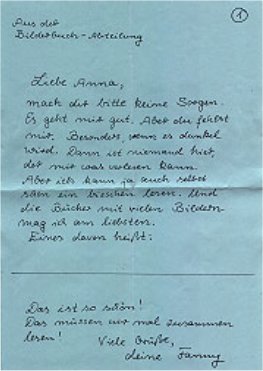 Aus der
Bilderbuch-Abteilung
1
Liebe Anna,
mach dir bitte keine Sorgen.
Es geht mir gut. Aber du fehlst
mir. Besonders, wenn es dunkel
wird. Dann ist niemand hier,
der mir was vorlesen kann.
Aber ich kann ja auch selbst
schon ein bisschen lesen. Und
die Bücher mit vielen Bildern
mag ich am liebsten.
Eines davon heißt:
Das ist so schön!
Das müssen wir mal zusammen
lesen!
Viele Grüße,
deine Fanny